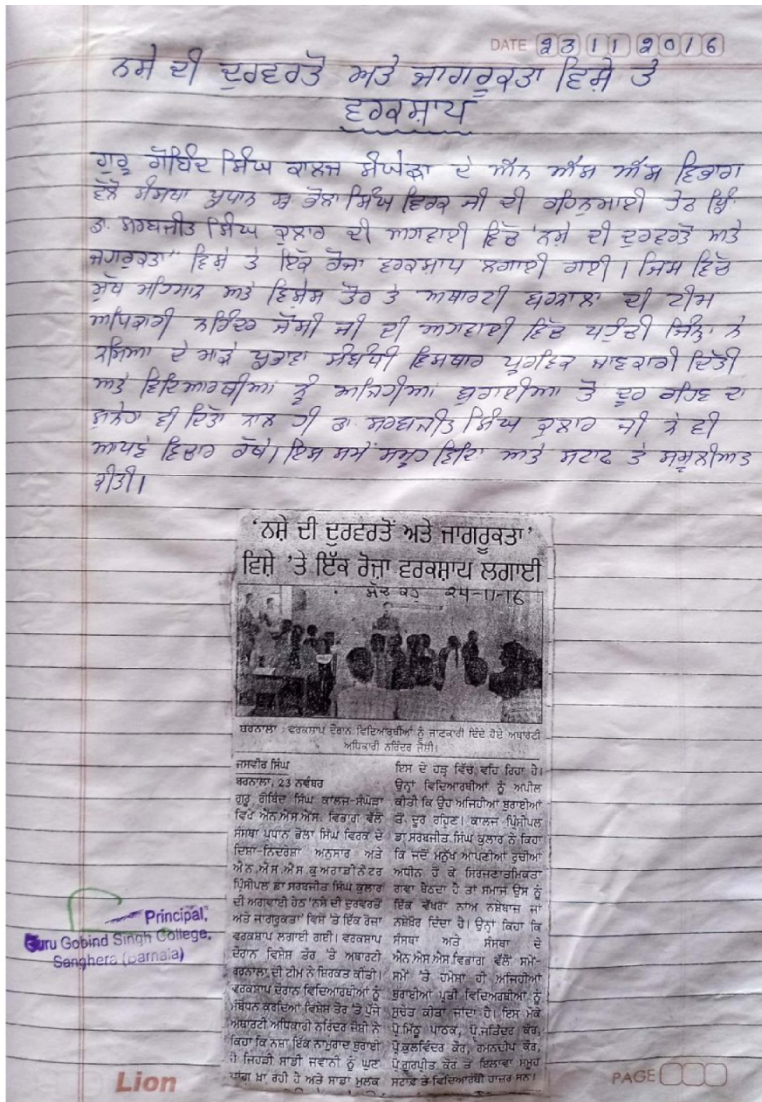 DATE 23 11 2016
ਨਸ਼ੇ ਦੀ ਦੁਰਵਰਤੋਂ ਅਤੇ ਜਾਗਰੂਕਤਾ ਵਿਸ਼ੇ ਤੇ
ਵਰਕਸ਼ਾਪ
ਗੁਰੂ ਗੋਬਿੰਦ ਸਿੰਘ ਕਾਲਜ ਸੰਘੇੜਾ ਦੇ ਐੱਨ ਐੱਸ ਐੱਸ ਵਿਭਾਗ
ਵੱਲੋਂ ਸੰਸਥਾ ਪ੍ਰਧਾਨ ਸ੍ਰ ਭੋਲਾ ਸਿੰਘ ਵਿਰਕ ਜੀ ਦੀ ਰਹਿਨੁਮਾਈ ਹੇਠ ਪ੍ਰਿੰ:
ਡਾ. ਸਰਬਜੀਤ ਸਿੰਘ ਕੁਲਾਰ ਦੀ ਅਗਵਾਈ ਵਿੱਚ 'ਨਸ਼ੇ ਦੀ ਦੁਰਵਰਤੋਂ ਅਤੇ
ਜਗਰੂਕਤਾ' ਵਿਸ਼ੇ ਤੇ ਇੱਕ ਰੋਜਾ ਵਰਕਸ਼ਾਪ ਲਗਾਈ ਗਈ। ਜਿਸ ਵਿੱਚ
ਮੁੱਖ ਮਹਿਮਾਨ ਅਤੇ ਵਿਸ਼ੇਸ਼ ਤੌਰ ਤੇ ਅਥਾਰਟੀ ਬਰਨਾਲਾ ਦੀ ਟੀਮ
ਅਧਿਕਾਰੀ ਨਰਿੰਦਰ ਜੋਸ਼ੀ ਜੀ ਦੀ ਅਗਵਾਈ ਵਿੱਚ ਪਹੁੰਚੀ ਜਿੰਨ੍ਹਾਂ ਨੇ
ਨਸ਼ਿਆ ਦੇ ਮਾੜੇ ਪ੍ਰਭਾਵਾਂ ਸੰਬੰਧੀ ਵਿਸਥਾਰ ਪੂਰਵਿਕ ਜਾਣਕਾਰੀ ਦਿੱਤੀ
ਅਤੇ ਵਿਦਿਆਰਥੀਆਂ ਨੂੰ ਅਜਿਹੀਆਂ ਬੁਰਾਈਆ ਤੋਂ ਦੂਰ ਰਹਿਣ ਦਾ
ਸੁਨੇਹਾ ਵੀ ਦਿੱਤਾ ਨਾਲ ਹੀ ਡਾ. ਸਰਬਜੀਤ ਸਿੰਘ ਕੁਲਾਰ ਜੀ ਨੇ ਵੀ
ਆਪਣੇ ਵਿਚਾਰ ਰੱਖੇ। ਇਸ ਸਮੇਂ ਸਮੂਹ ਵਿਦਿ ਅਤੇ ਸਟਾਫ ਤੇ ਸ਼ਮੂਲੀਅਤ
ਕੀਤੀ।
'ਨਸ਼ੇ ਦੀ ਦੁਰਵਰਤੋਂ ਅਤੇ ਜਾਗਰੂਕਤਾ'
ਵਿਸ਼ੇ 'ਤੇ ਇੱਕ ਰੋਜ਼ਾ ਵਰਕਸ਼ਾਪ ਲਗਾਈ
ਸੱਚ ਕਹੂੰ 24-11-16
ਬਰਨਾਲਾ : ਵਰਕਸ਼ਾਪ ਦੌਰਾਨ ਵਿਦਿਆਰਥੀਆਂ ਨੂੰ ਜਾਣਕਾਰੀ ਦਿੰਦੇ ਹੋਏ ਅਥਾਰਟੀ
ਅਧਿਕਾਰੀ ਨਰਿੰਦਰ ਜੋਸ਼ੀ।
ਜਸਵੀਰ ਸਿੰਘ
ਬਰਨਾਲਾ, 23 ਨਵੰਬਰ
ਗੁਰੂ ਗੋਬਿੰਦ ਸਿੰਘ ਕਾਲਜ-ਸੰਘੇੜਾ
ਵਿਖੇ ਐਨ.ਐਸ.ਐਸ. ਵਿਭਾਗ ਵੱਲੋਂ
ਸੰਸਥਾ ਪ੍ਰਧਾਨ ਭੋਲਾ ਸਿੰਘ ਵਿਰਕ ਦੇ
ਦਿਸ਼ਾ-ਨਿਰਦੇਸ਼ਾਂ ਅਨੁਸਾਰ ਅਤੇ
ਐਨ.ਐਸ.ਐਸ.ਕੁਆਰਡੀਨੇਟਰ
ਪ੍ਰਿੰਸੀਪਲ ਡਾ ਸਰਬਜੀਤ ਸਿੰਘ ਕੁਲਾਰ
ਦੀ ਅਗਵਾਈ ਹੇਠ 'ਨਸ਼ੇ ਦੀ ਦੁਰਵਰਤੋਂ
ਅਤੇ ਜਾਗਰੂਕਤਾ' ਵਿਸ਼ੇ 'ਤੇ ਇੱਕ ਰੋਜਾ
ਵਰਕਸ਼ਾਪ ਲਗਾਈ ਗਈ। ਵਰਕਸ਼ਾਪ
ਦੌਰਾਨ ਵਿਸ਼ੇਸ਼ ਤੌਰ 'ਤੇ ਅਥਾਰਟੀ
ਬਰਨਾਲਾ ਦੀ ਟੀਮ ਨੇ ਸ਼ਿਰਕਤ ਕੀਤੀ।
ਵਰਕਸ਼ਾਪ ਦੌਰਾਨ ਵਿਦਿਆਰਥੀਆਂ ਨੂੰ
ਸੰਬੋਧਨ ਕਰਦਿਆ ਵਿਸ਼ੇਸ਼ ਤੌਰ 'ਤੇ ਪੁੱਜੇ
ਅਥਾਰਟੀ ਅਧਿਕਾਰੀ ਨਰਿੰਦਰ ਜੋਸ਼ੀ ਨੇ
ਕਿਹਾ ਕਿ ਨਸ਼ਾ ਇੱਕ ਨਾਮੁਰਾਦ ਬੁਰਾਈ
ਹੈ ਜਿਹੜੀ ਸਾਡੀ ਜਵਾਨੀ ਨੂੰ ਘੁਣ
ਵਾਂਗ ਖਾ ਰਹੀ ਹੈ ਅਤੇ ਸਾਡਾ ਮੁਲਕ
ਇਸ ਦੇ ਹੜ੍ਹ ਵਿੱਚ ਵਹਿ ਰਿਹਾ ਹੈ।
ਉਨ੍ਹਾਂ ਵਿਦਿਆਰਥੀਆਂ ਨੂੰ ਅਪੀਲ
ਕੀਤੀ ਕਿ ਉਹ ਅਜਿਹੀਆਂ ਬੁਰਾਈਆਂ
ਤੋਂ ਦੂਰ ਰਹਿਣ। ਕਾਲਜ ਪ੍ਰਿੰਸੀਪਲ
ਡਾ ਸਰਬਜੀਤ ਸਿੰਘ ਕੁਲਾਰ ਨੇ ਕਿਹਾ
ਕਿ ਜਦੋਂ ਮਨੁੱਖ ਆਪਣੀਆਂ ਰੁਚੀਆਂ
ਅਧੀਨ ਹੋ ਕੇ ਸਿਰਜਣਾਤਮਿਕਤਾ
ਗਵਾ ਬੈਠਦਾ ਹੈ ਤਾਂ ਸਮਾਜ ਉਸ ਨੂੰ
ਇੱਕ ਵੱਖਰਾ ਨਾਅ ਨਸ਼ੇਬਾਜ਼ ਜਾਂ
ਨਸ਼ੇਖੋਰ ਦਿੰਦਾ ਹੈ। ਉਨ੍ਹਾਂ ਕਿਹਾ ਕਿ
ਸੰਸਥਾ ਅਤੇ ਸੰਸਥਾ ਦੇ
ਐਨ.ਐਸ.ਐਸ.ਵਿਭਾਗ ਵੱਲੋਂ ਸਮੇਂ-
ਸਮੇਂ 'ਤੇ ਹਮੇਸ਼ਾ ਹੀ ਅਜਿਹੀਆਂ
ਬੁਰਾਈਆਂ ਪ੍ਰਤੀ ਵਿਦਿਆਰਥੀਆਂ ਨੂੰ
ਸੁਚੇਤ ਕੀਤਾ ਜਾਂਦਾ ਹੈ। ਇਸ ਮੌਕੇ
ਪ੍ਰੋ ਮਿੰਠੂ ਪਾਠਕ, ਪ੍ਰੋ.ਜਤਿੰਦਰ ਕੌਰ,
ਪ੍ਰੋ ਕੁਲਵਿੰਦਰ ਕੌਰ, ਰਮਨਦੀਪ ਕੌਰ,
ਪ੍ਰੋ ਗੁਰਪ੍ਰੀਤ ਕੌਰ ਤੋਂ ਇਲਾਵਾ ਸਮੂਹ
ਸਟਾਫ਼ ਤੇ ਵਿਦਿਆਰਥੀ ਹਾਜ਼ਰ ਸਨ।
Principal,
Guru Gobind Singh College,
Sanghera (Barnala)
Lion
PAGE